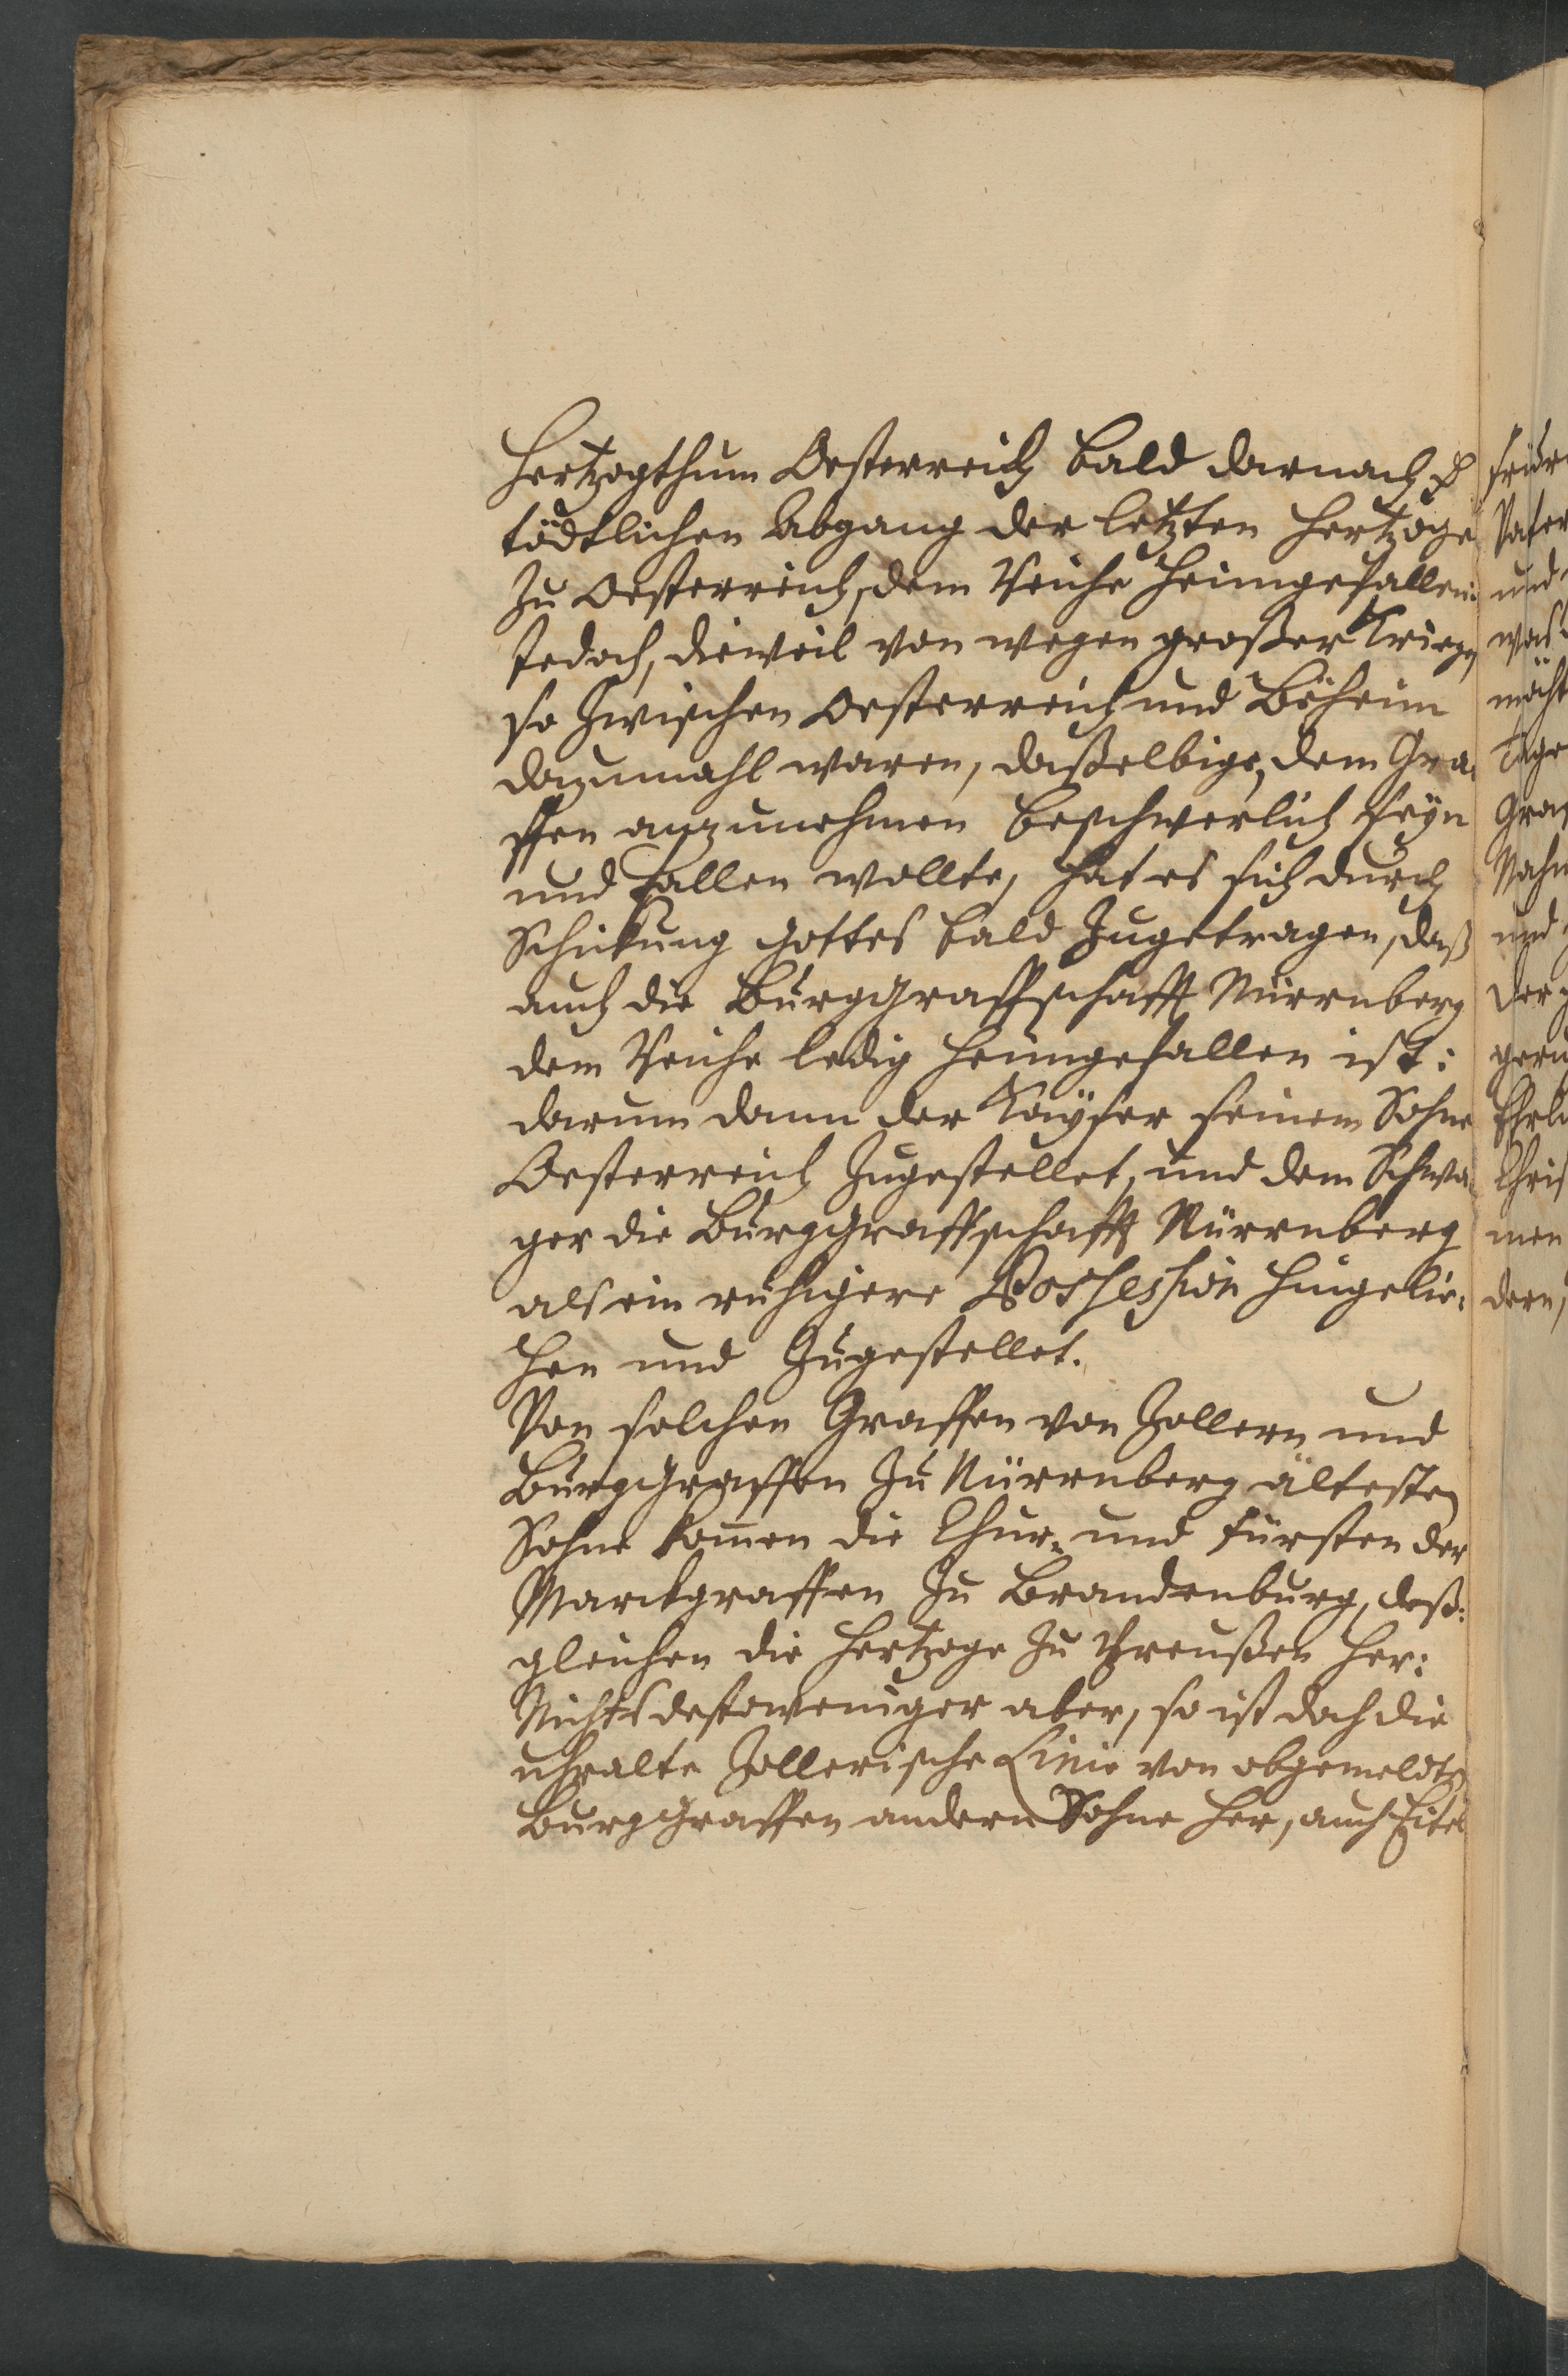 Hertzogthum Oesterreich bald darnach
tödtlichen Abgang der letzten Hertzoge
zu Oesterreich, dem Reiche heimgefallen:
Jedoch, dieweil von wegen großer Kriege,
so zwischen Oesterreich und Böheim
dazumahl waren, daßelbige, dem Gra-
ffen anzunehmen beschwerlich seyn
und fallen wollte, hat es sich durch
Schickung Gottes bald zugetragen, daß
auch die Burggraffschafft Nürrnberg
dem Reiche ledig heimgefallen ist:
darum dann der Kayser seinem Sohne
Oesterreich zugestellet, und dem Schwa-
ger die Burggraffschafft Nürrnberg
als ein ruhigere Possession hingelie-
hen und zugestellet.
Von solchen Graffen von Zollern und
Burggraffen zu Nürrnberg ältesten
Sohne kom̄en die Chur- und Fürsten der
Marckgraffen zu Brandenburg, deß-
gleichen die Hertzoge zu Preußen her:
Nichts destoweniger aber, so ist doch die
uhralte Zollerische Linie von obgemeldts
Burggraffen andern Sohne her, auch Eitel
und
Tage
Gra
Nahm
und
men
dern,